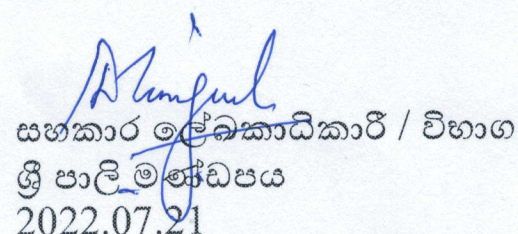 සහකාර ලේඛකාධිකාරී / විභාග
ශ්‍රී පාලි මණ්ඩපය
2022.07.21